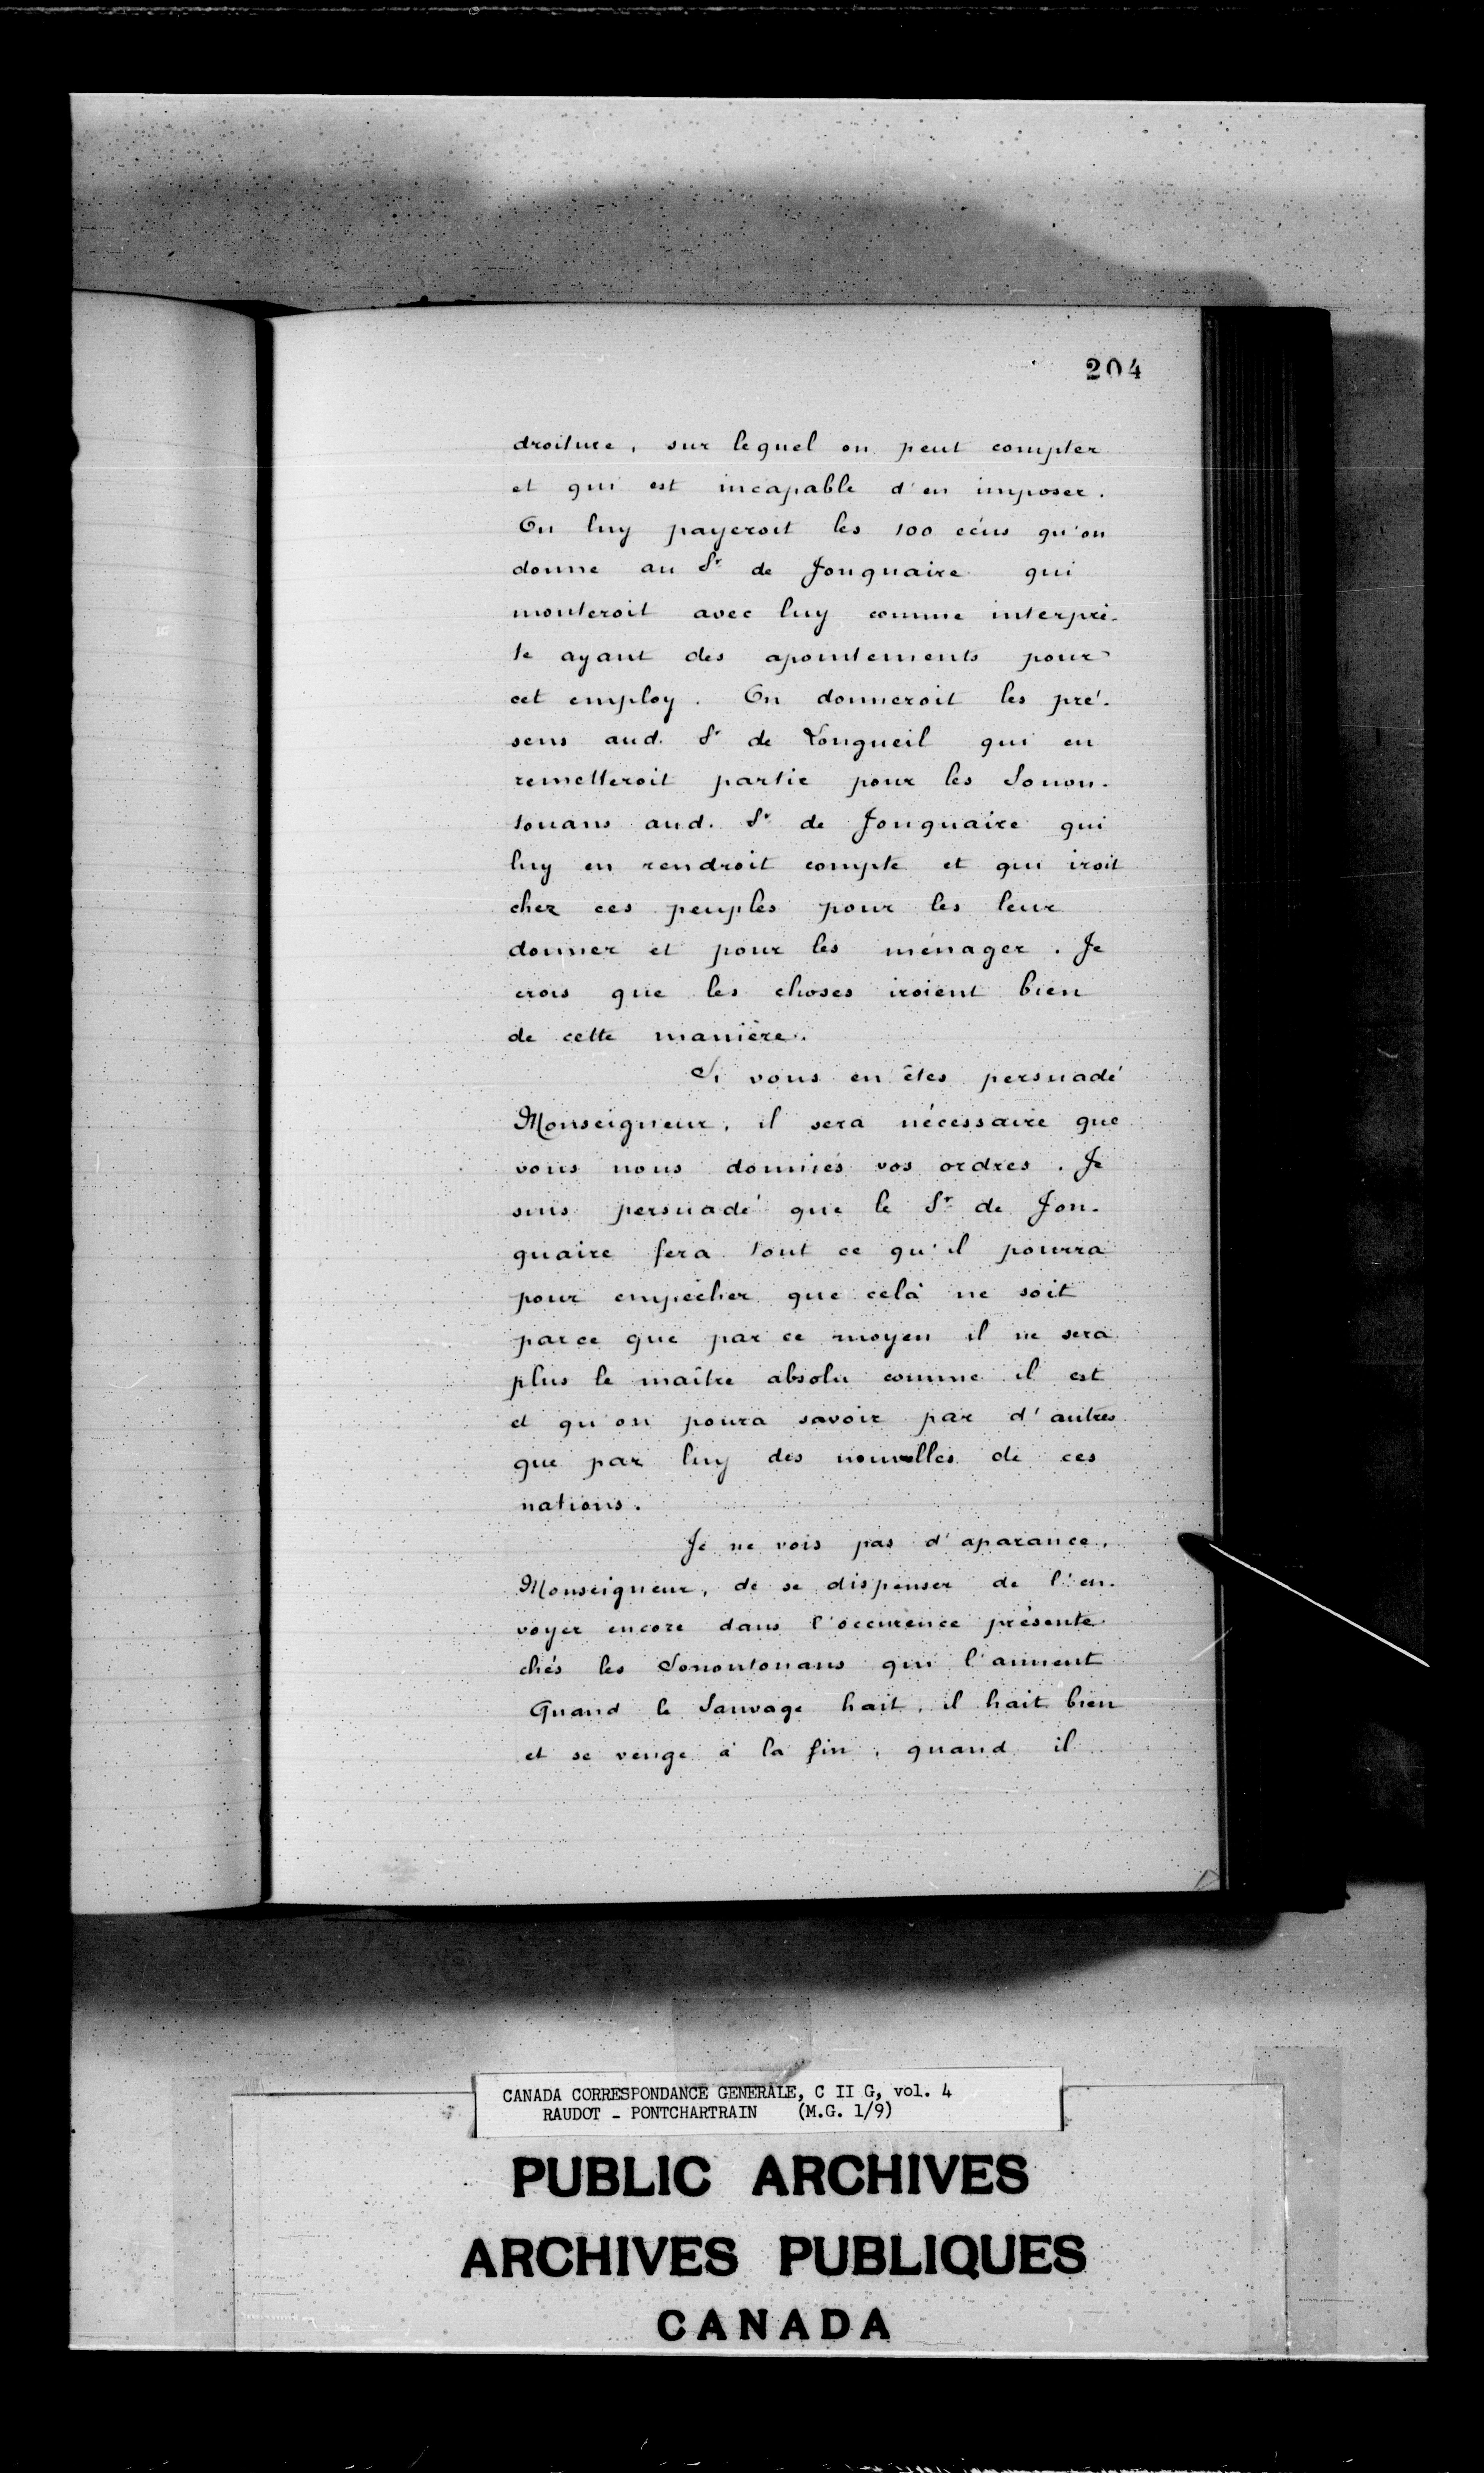 204
droiture, sur lequel on peut compter
et qui est incapable d'en imposer.
On luy payeroit les 100 écus qu'on
donne au Sr de Jonquaire qui
monteroit avec luy comme interprè-
te ayant des apointements pour
cet employ. On donneroit les pré-
sens aud. Sr de Longueil qui en
remetteroit partie pour les Sonon-
touans aud. Sr de Jonquaire qui
luy en rendroit compte et qui iroit
chez ces peuples pour les leur
donner et pour les ménager. Je
crois que les choses iroient bien
de cette manière.
Si vous en êtes persuadé
Monseigneur, il sera nécessaire que
vous nous donniés vos ordres. Je
suis persuadé que le Sr de Jon-
quaire fera tout ce qu'il pourra
pour empêcher que celà ne soit
parce que par ce moyen il ne sera
plus le maître absolu comme il est
et qu'on poura savoir par d'autres
que par luy des nouvelles de ces
nations.
Je ne vois pas d'aparance,
Monseigneur, de se dispenser de l'en-
voyer encore dans l'occurence présente
chés les Sonontouans qui l'aiment
Quand le Sauvage hait, il hait bien
et se venge à la fin, quand il
CANADA CORRESPONDANCE GENERALE, C II G, vol. 4
RAUDOT - PONTCHARTRAIN (M.G. 1/9)
PUBLIC ARCHIVES
ARCHIVES PUBLIQUES
CANADA